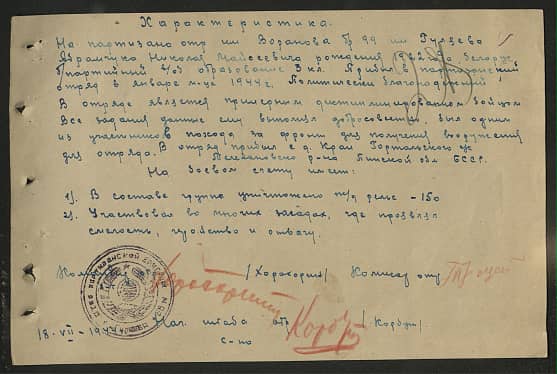 Характеристика.
На партизана отр. им Воранова бр 99 им Гуляева
Абрамчука Николая Майсеевича рождения 1922 года белорус,
Б/партийний образование 3 кл. Прибыл в партизанский
отряд в январе м-це 1944г. Политически благонадежний,
В отряде является примерным дисциплинированом бойцом
Все задания данные ему выполнял добросовестно, был одним
из участников похода за фронт для получения вооружения
для отряда. В отряд прибыл с д. Край
Телеханского р-на Пинской обл БССР.
На боевом счету имеет:
1). В составе группы уничтожено ж/д рельс - 150
2). Участвовал во многих засадах, где проявлял
смелость, и отвагу.
Ком /Хорохорин/ Комисар отр.
18 - VII - Нач. штаба отр /Корбут/
с-на